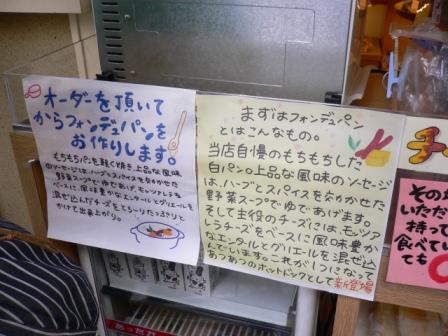 オーダーを頂いて
からフォンデュパンを
お作りします。
もちもちパンを軽く焼き、上品な風味
のソーセージは、ハーブとスパイスを交かせた
野菜スープでゆであげ、モッツァレラを
ベースに、風味豊かなエメンタールとグリエールを
混ぜ込んだチーズをとろ〜りたっぷりと
かけて出来上がり。
まずはフォンデュパン
とはこんなもの。
当店自慢のもちもちした
白パン。上品な風味のソーセージ
は、ハーブとスパイスを交かせた
野菜スープでゆであげます。
そして主役のチーズには、モッツァ
レラチーズをベースに風味豊か
なエメンタールとグリエールを混ぜ込
んでいます。これが1つになって
あつあつのホットドックとして新登場
チ
その
いただ
持って
食べてい
ても
あったか